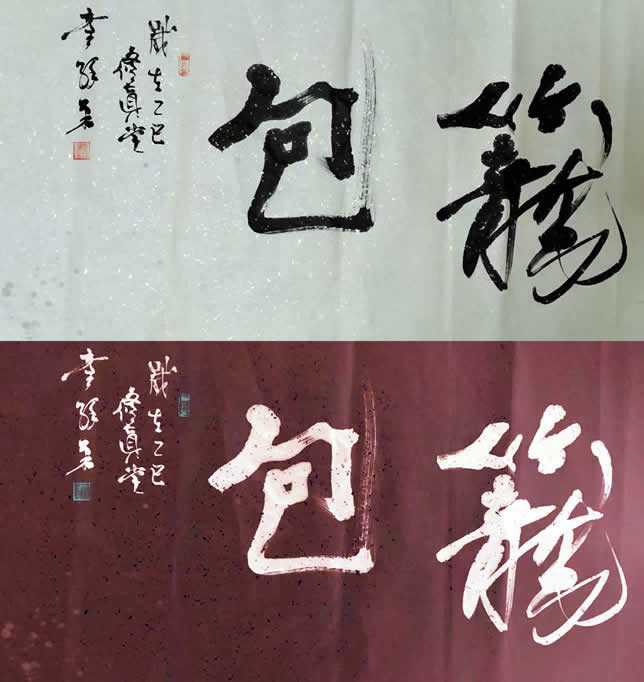 籠包
歲在乙巳
修真堂
李
籠包
歲在乙巳
修真堂
李